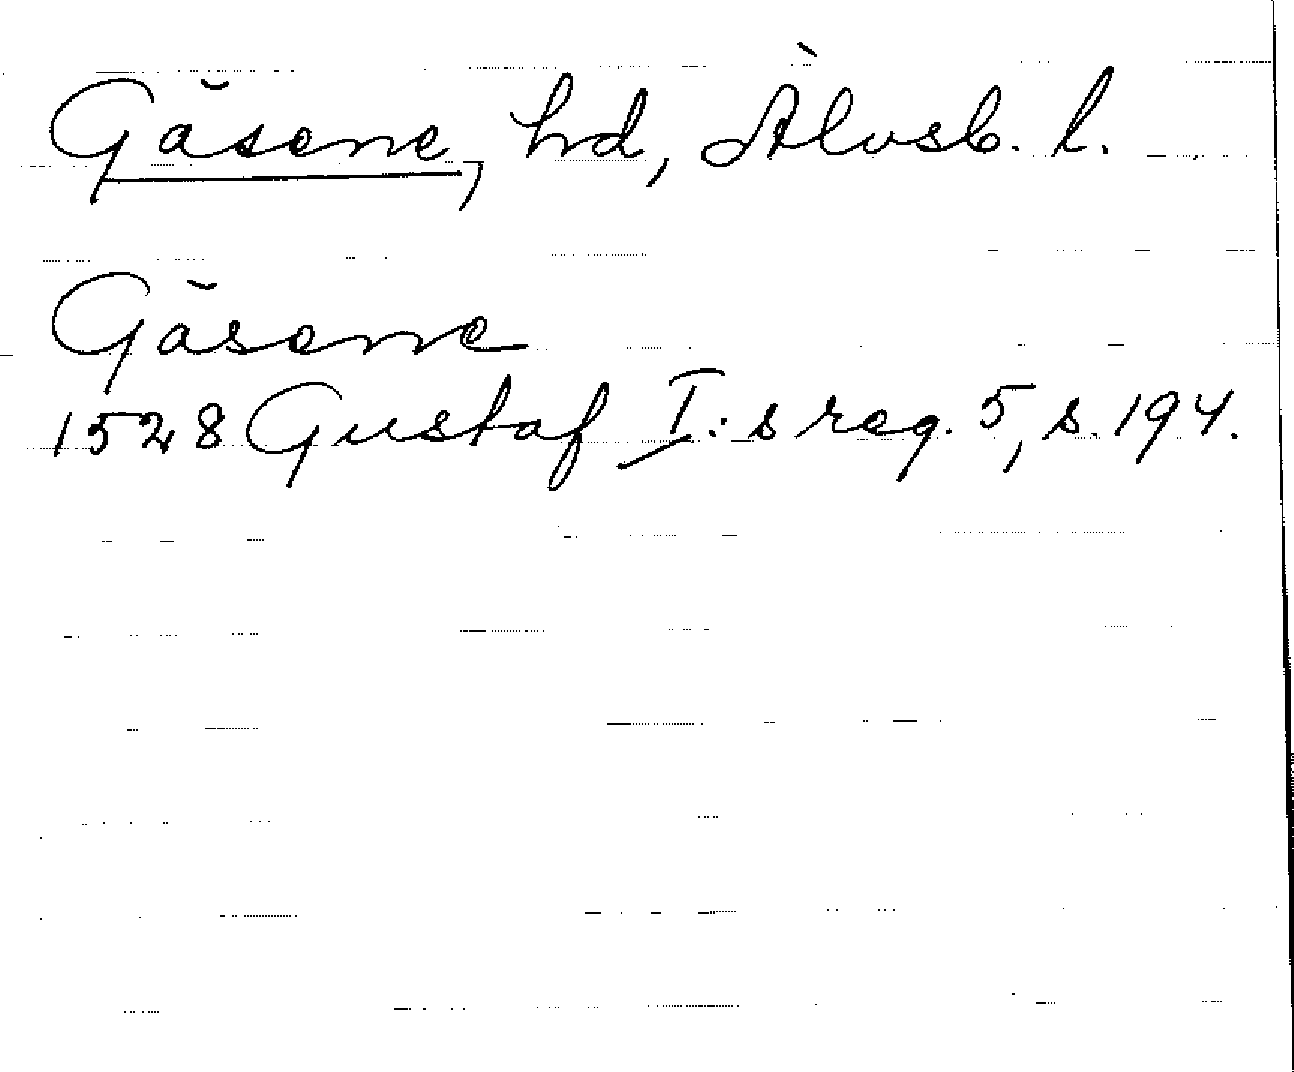 Gäsene, hd, Älvsb. l.
Gäsene
1528 Gustaf I:s reg. 5, s. 194.